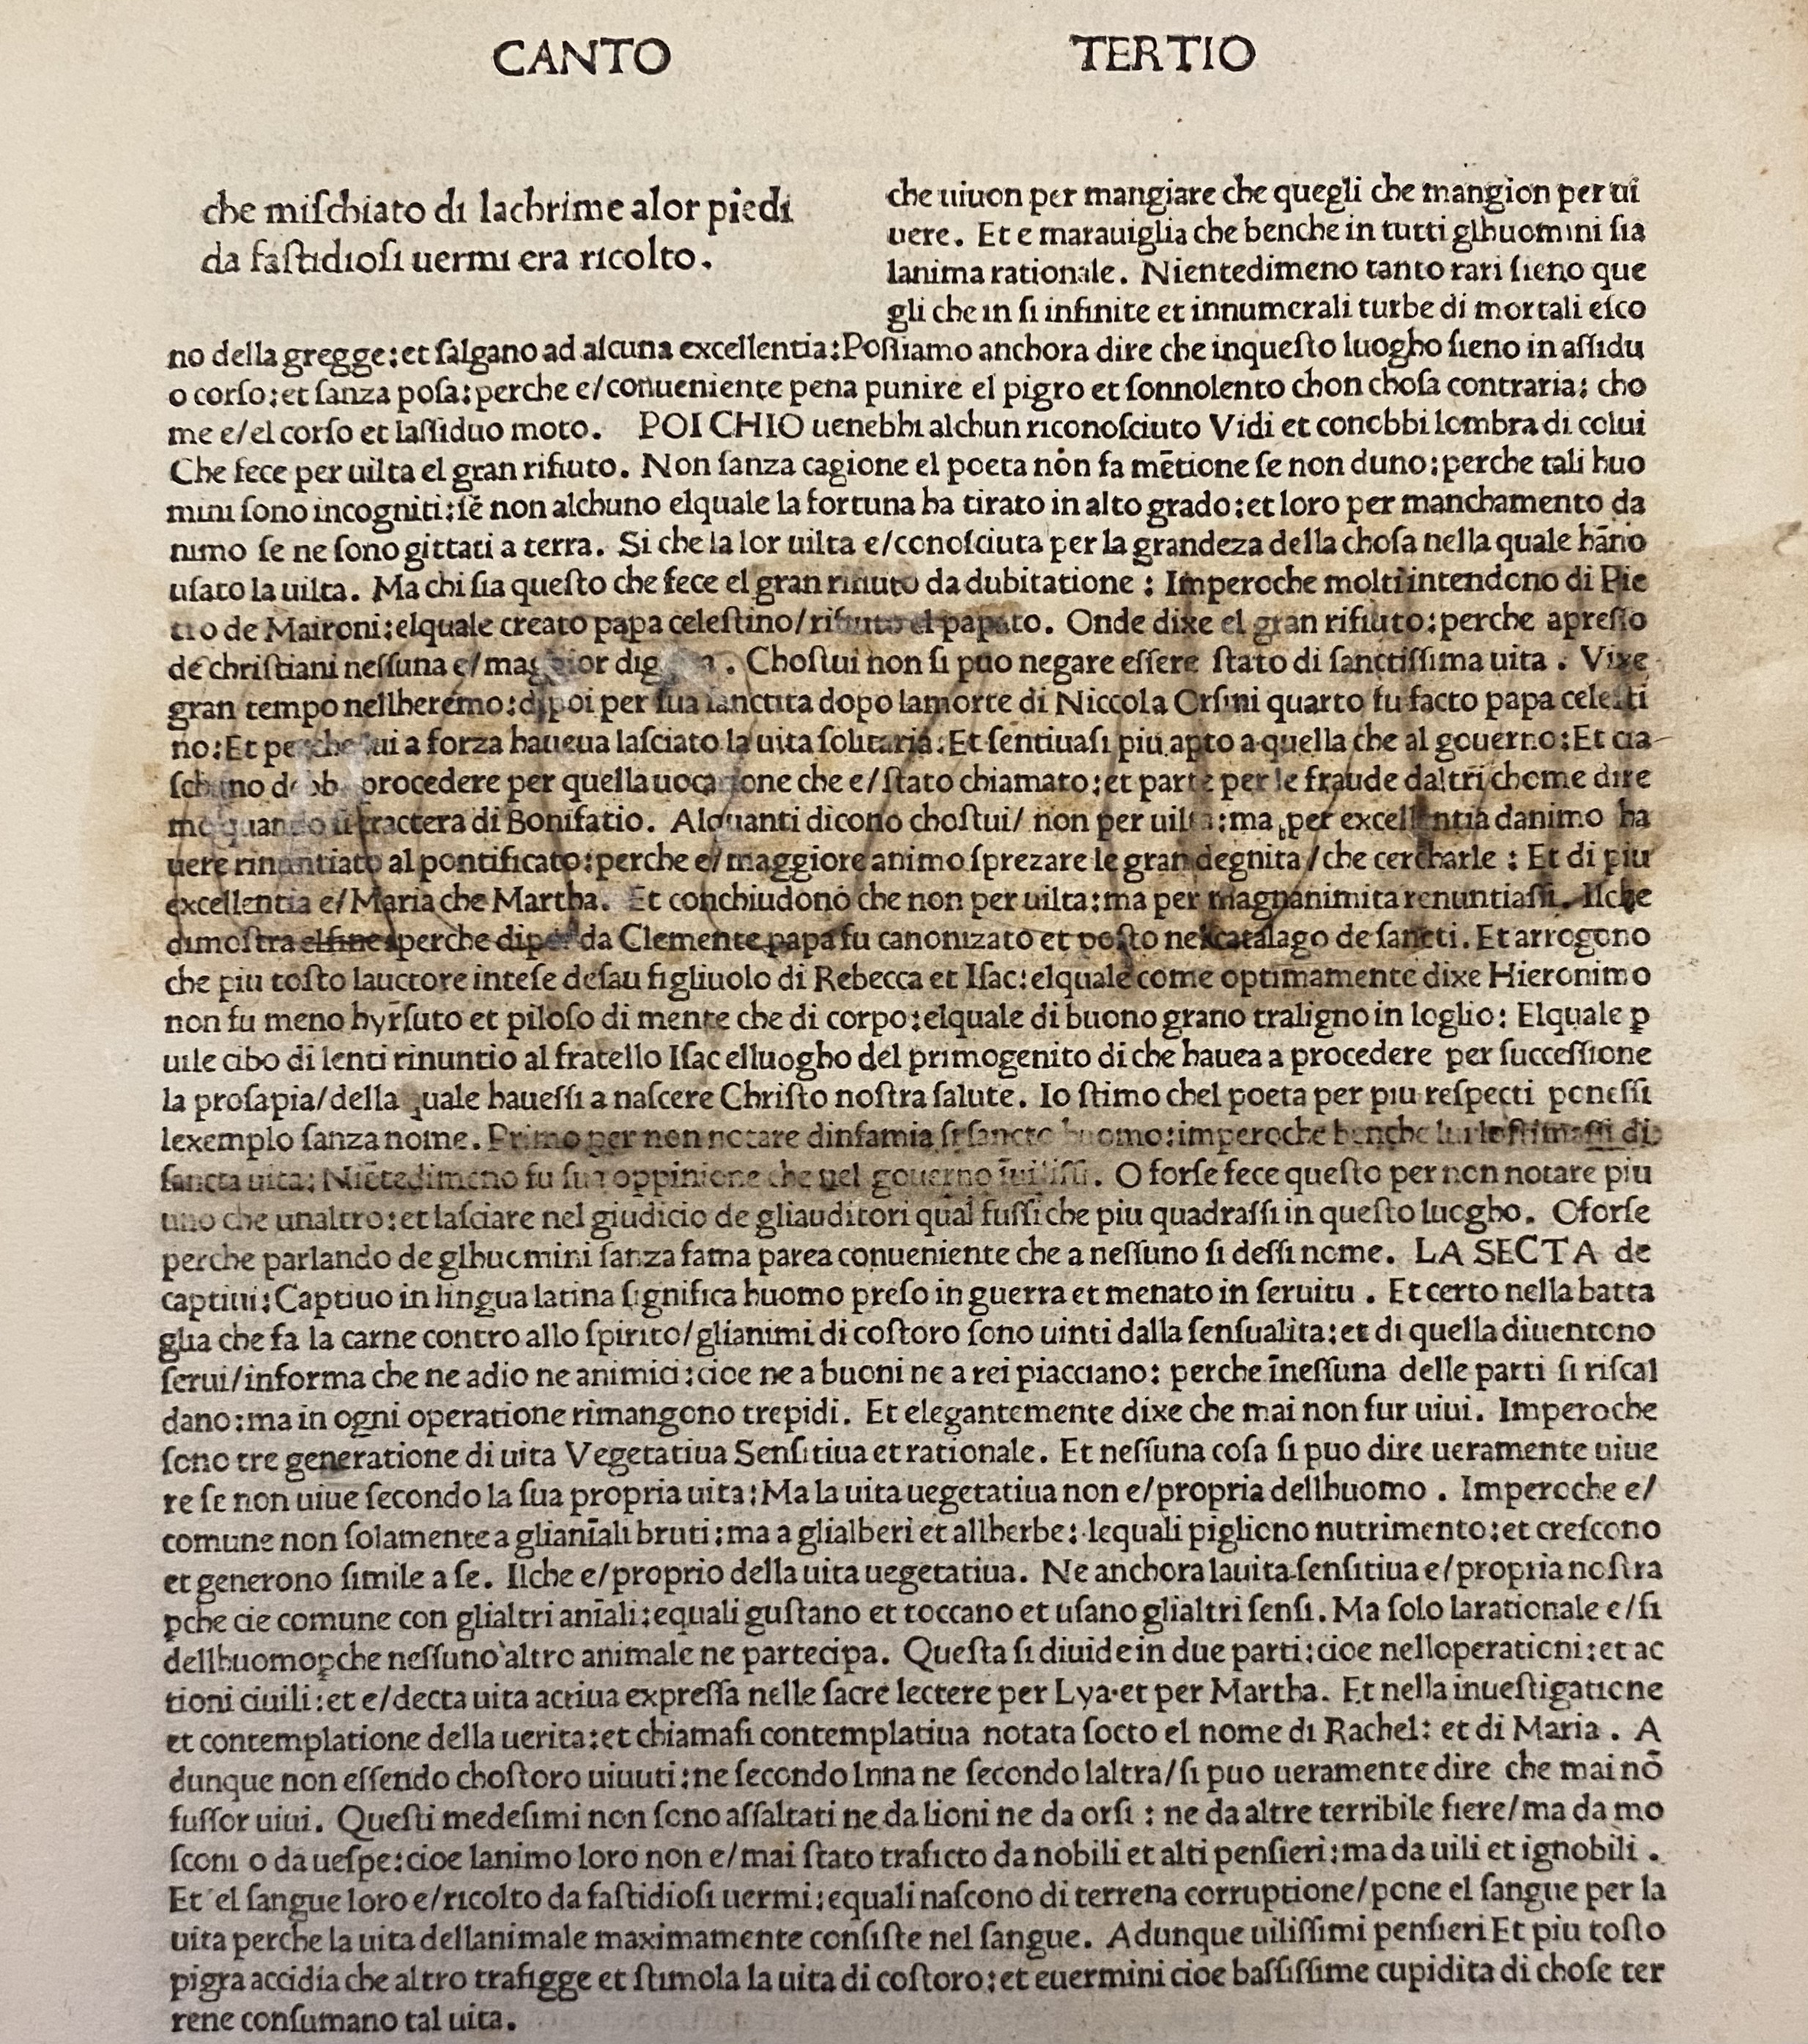 CANTO TERTIO
che miſchiato di lachrime alor piedi
da faſtidioſi uermi era ricolto.
che uiuon per mangiare che quegli che mangion per ui
uere. Et e marauiglia che benche in tutti glhuomini ſia
lanima rationale. Nientedimeno tanto rari ſieno que
gli che in ſi infinite et innumerali turbe di mortali eſco
no della gregge:et ſalgano ad alcuna excellentia:Poſſiamo anchora dire che inqueſto luogho ſieno in aſſidu
o corſo:et ſanza poſa:perche e/conueniente pena punire el pigro et ſonnolento chon choſa contraria: cho
me e/el corſo et laſſiduo moto. POI CHIO uenebbi alchun riconoſciuto Vidi et conobbi lombra di colui
Che fece per uilta el gran rifiuto. Non ſanza cagione el poeta non fa mētione ſe non duno:perche tali huo
mini ſono incogniti:ſe non alchuno elquale la fortuna ha tirato in alto grado:et loro per manchamento da
nimo ſe ne ſono gittati a terra. Si che la lor uilta e/conoſciuta per la grandeza della choſa nella quale hāno
uſato la uilta. Ma chi ſia queſto che fece el gran rifiuto da dubitatione : Imperoche molti intendono di Pie
tro de Maironi:elquale creato papa celeſtino/rifiuto el papato. Onde dixe el gran rifiuto:perche apreſſo
de chriſtiani neſſuna e/maggior . Choſtui non ſi puo negare eſſere ſtato di ſanctiſſima uita . Vixe
gran tempo nellheremo:dipoi per ſua ſanctita dopo lamorte di Niccola Orſini quarto fu facto papa celeſti
no:Et perche lui a forza haueua laſciato la uita ſolitaria:Et ſentiuaſi piu apto a quella che al gouerno:Et cia
ſchuno procedere per quella uocatione che e/ſtato chiamato:et parte per le fraude daltri chome dire
mo quando ſi tractera di Bonifatio. Alquanti dicono choſtui/ non per uilta:ma per excellentia danimo ha
uere rinuntiato al pontificato:perche e/maggiore animo ſprezare le gran degnita/che cercharle : Et di piu
excellentia e/Maria che Martha. Et conchiudono che non per uilta:ma per magnanimita renuntiaſſi. Ilche
dimoſtra elfine:perche dipoi da Clemente papa fu canonizato et poſto nel catalago de ſancti. Et arrogono
che piu toſto lauctore inteſe deſau figliuolo di Rebecca et Iſac:elquale come optimamente dixe Hieronimo
non fu meno hyrſuto et piloſo di mente che di corpo:elquale di buono grano traligno in loglio: Elquale ꝑ
uile cibo di lenti rinuntio al fratello Iſac elluogho del primogenito di che hauea a procedere per ſucceſſione
la proſapia/della quale haueſſi a naſcere Chriſto noſtra ſalute. Io ſtimo chel poeta per piu reſpecti poneſſi
lexemplo ſanza nome. Primo per non notare dinfamia ſi ſancto huomo:imperoche benche lui lo ſtimaſſi di
ſancta uita: Niētedimeno fu ſua oppinione che nel gouerno īuiliſſi. O forſe fece queſto per non notare piu
uno che unaltro:et laſciare nel giudicio de gliauditori qual fuſſi che piu quadraſſi in queſto luogho. Oforſe
perche parlando de glhuomini ſanza fama parea conueniente che a neſſuno ſi deſſi nome. LA SECTA de
captiui:Captiuo in lingua latina ſignifica huomo preſo in guerra et menato in ſeruitu . Et certo nella batta
glia che fa la carne contro allo ſpirito/glianimi di coſtoro ſono uinti dalla ſenſualita:et di quella diuentono
ſerui/informa che ne adio ne animici:cioe ne a buoni ne a rei piacciano: perche īneſſuna delle parti ſi riſcal
dano:ma in ogni operatione rimangono trepidi. Et elegantemente dixe che mai non fur uiui. Imperoche
ſono tre generatione di uita Vegetatiua Senſitiua et rationale. Et neſſuna coſa ſi puo dire ueramente uiue
re ſe non uiue ſecondo la ſua propria uita:Ma la uita uegetatiua non e/propria dellhuomo . Imperoche e/
comune non ſolamente a glianīali bruti:ma a glialberi et allherbe: lequali pigliono nutrimento:et creſcono
et generono ſimile a ſe. Ilche e/proprio della uita uegetatiua. Ne anchora lauita ſenſitiua e/propria noſtra
ꝑche cie comune con glialtri anīali:equali guſtano et toccano et uſano glialtri ſenſi. Ma ſolo larationale e/ſi
dellhuomoꝑche neſſuno altro animale ne partecipa. Queſta ſi diuide in due parti:cioe nelloperationi:et ac
tioni ciuili:et e/decta uita actiua expreſſa nelle ſacre lectere per Lya et per Martha. Et nella inueſtigatione
et contemplatione della uerita:et chiamaſi contemplatiua notata ſocto el nome di Rachel: et di Maria . A
dunque non eſſendo choſtoro uiuuti:ne ſecondo lnna ne ſecondo laltra/ſi puo ueramente dire che mai nō
fuſſor uiui. Queſti medeſimi non ſono aſſaltati ne da lioni ne da orſi : ne da altre terribile fiere/ma da mo
ſconi o da ueſpe:cioe lanimo loro non e/mai ſtato traficto da nobili et alti penſieri:ma da uili et ignobili .
Et el ſangue loro e/ricolto da faſtidioſi uermi:equali naſcono di terrena corruptione/pone el ſangue per la
uita perche la uita dellanimale maximamente conſiſte nel ſangue. Adunque uiliſſimi penſieri Et piu toſto
pigra accidia che altro trafigge et ſtimola la uita di coſtoro:et euermini cioe baſſiſſime cupidita di choſe ter
rene conſumano tal uita.